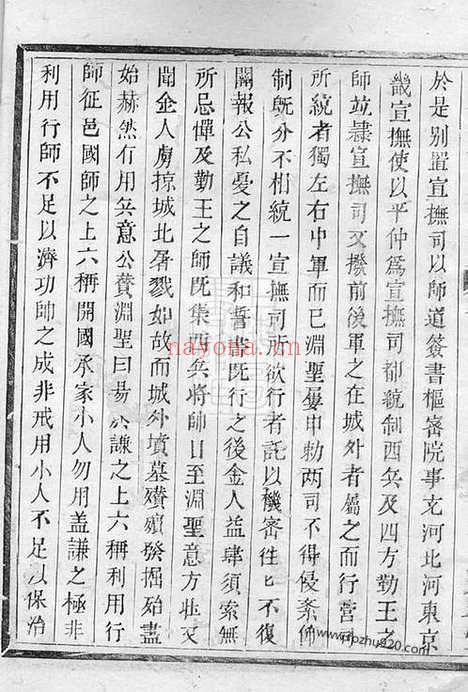 於是別置宣撫司以師道簽書樞密院事充河北河東京
畿宣撫使以平仲爲宣撫司都統制西兵及四方勤王之
師竝隸宣撫司又撥前後軍之在城外者屬之而行營司
所統者獨左右中軍而已淵聖屢申勅兩司不得侵紊
制旣分不相統一宣撫司所欲行者託以機密往已不復
關報公私憂之自議和誓書旣行之後金人益肆須索無
所忌憚及勤王之師旣集西兵將帥日至淵聖意方壯又
聞金人虜掠城北屠戮如故而城外墳墓殯發掘殆盡
始赫然有用兵意公贊淵聖曰易於謙之上六稱利用行
師征邑國師之上六稱開國承家小人勿用盖謙之極非
利用行師不足以濟功帥之成非戒用小人不足以保治
nayona.cn
nopzhu920.com